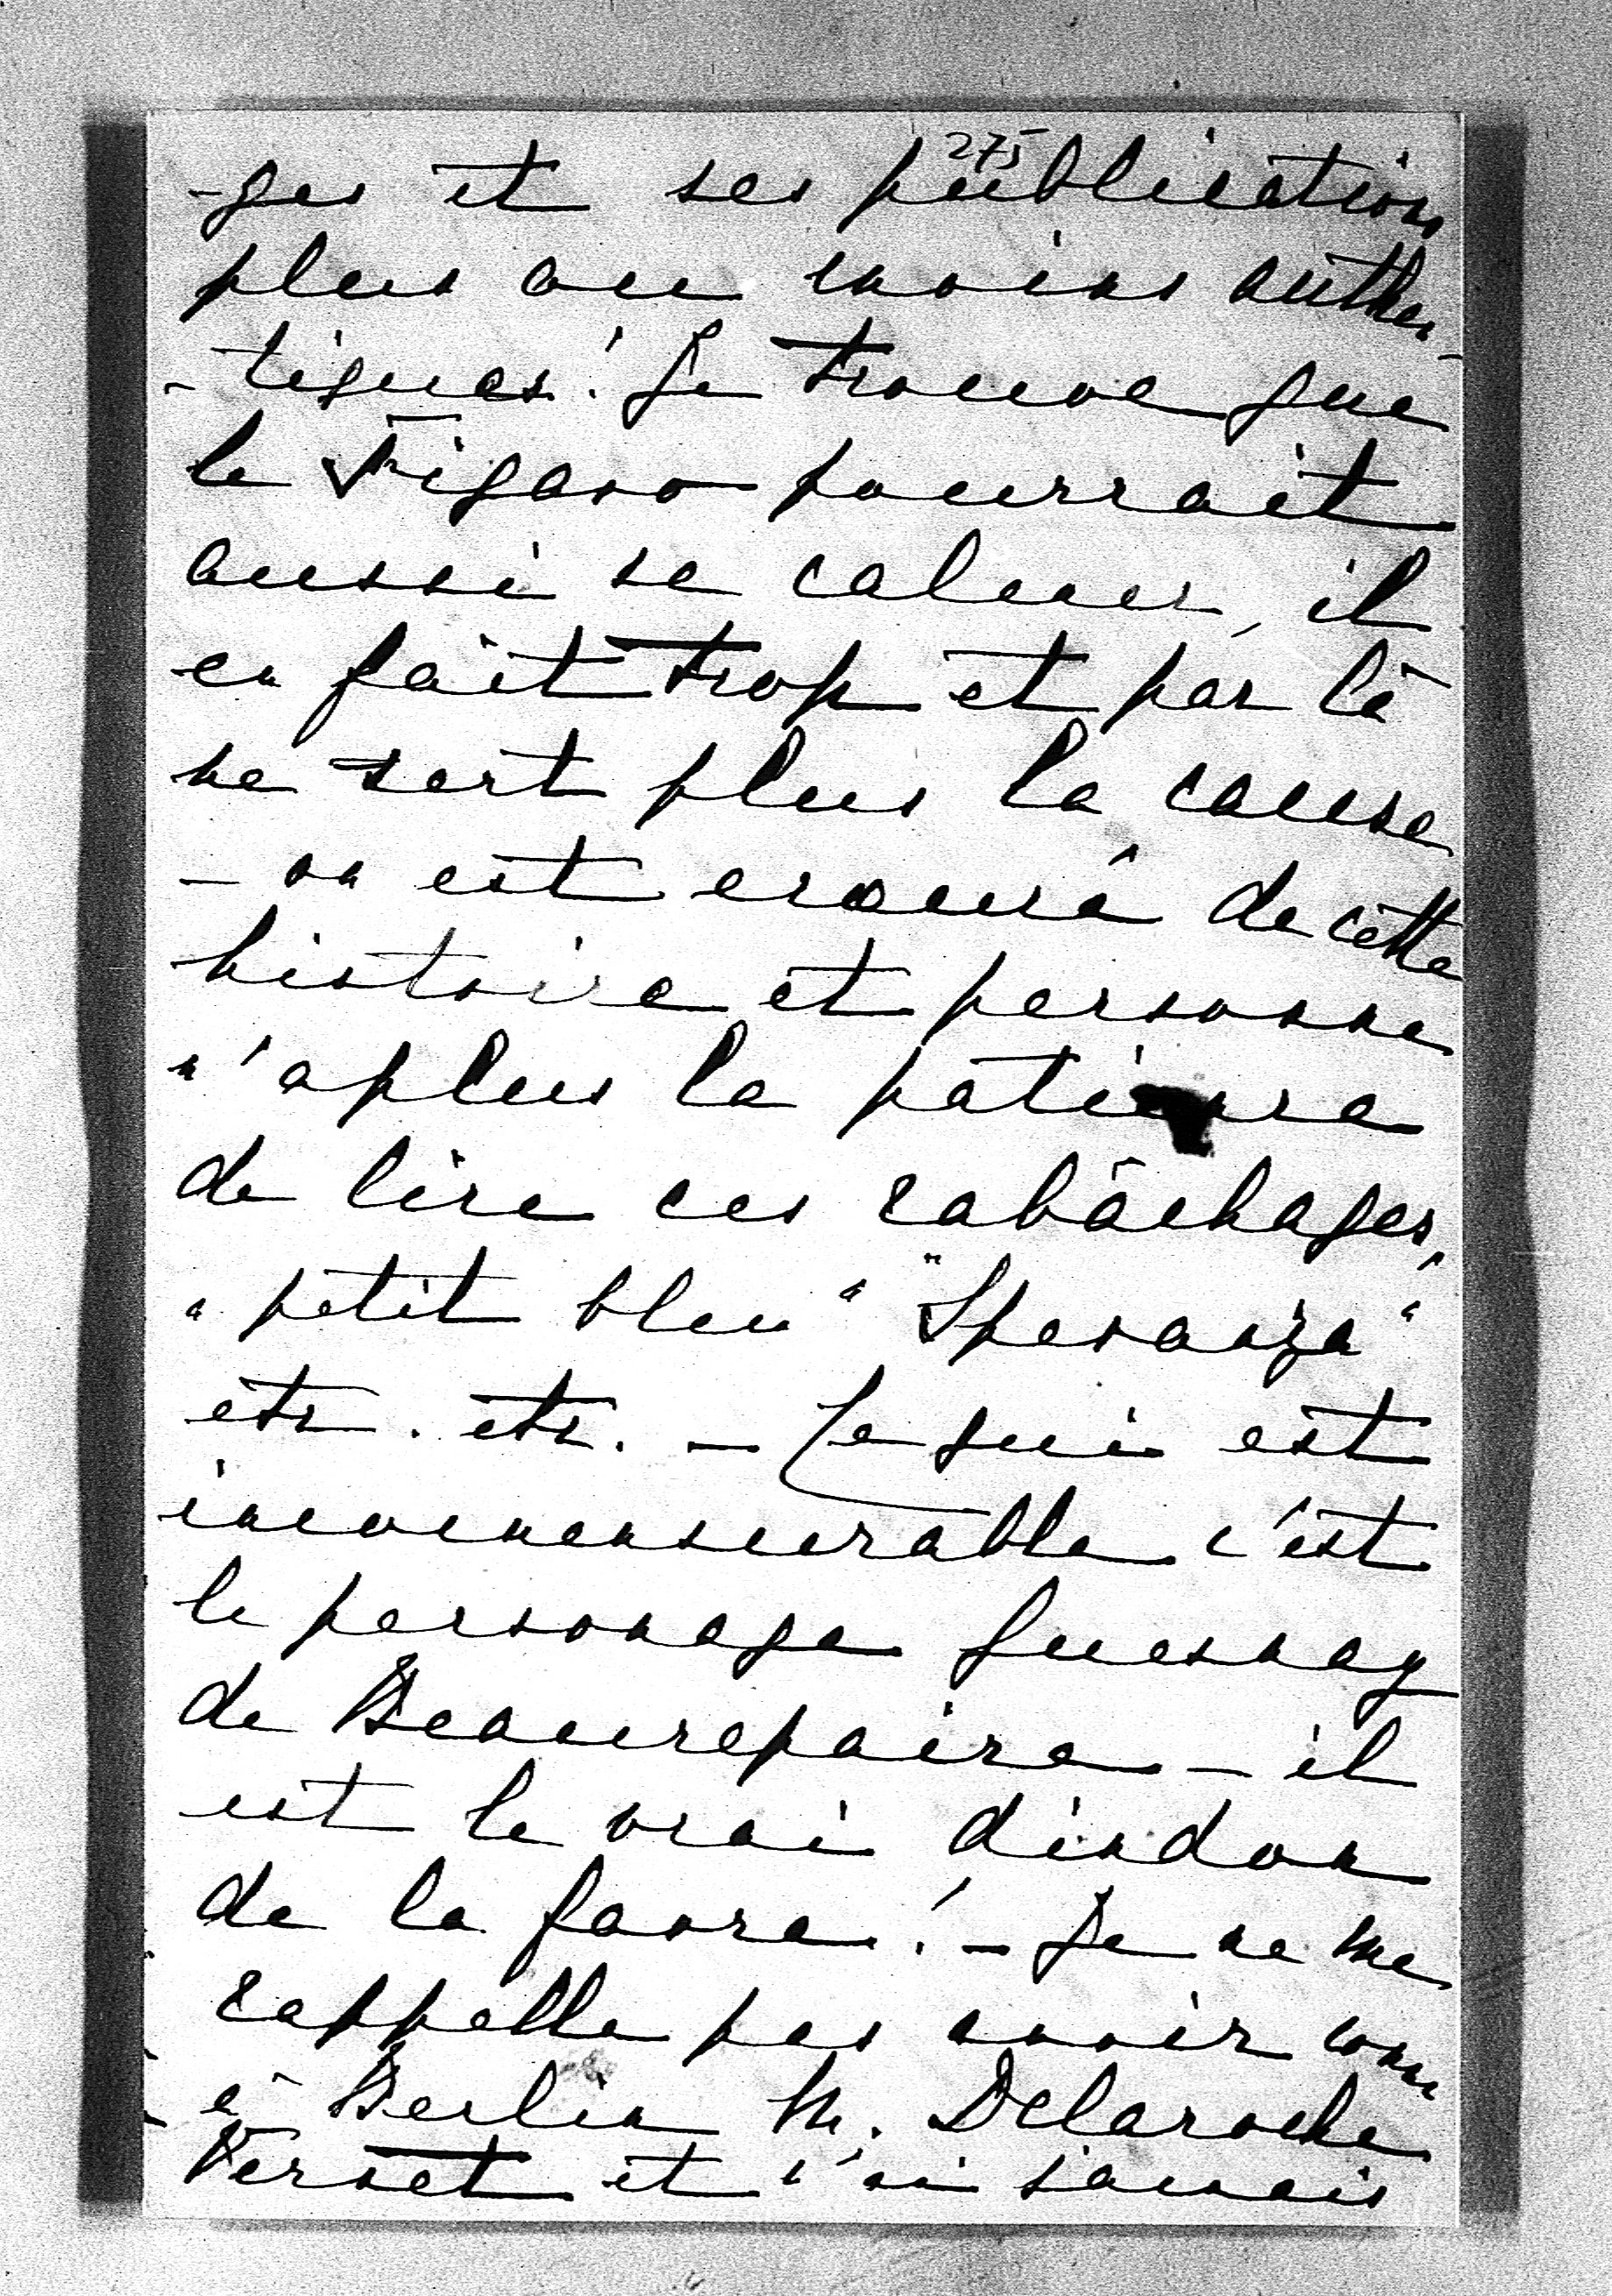 275
-ges et ses publications
plus ou moins authen-
-tiques! Je trouve que
le Figaro pourrait
aussi se calmer, il
en fait trop et par là
ne sert plus la cause
- on est écœuré de cette
histoire et personne
n'a plus la patience
de lire ces rabâchages,
"petit bleu" "Speranza"
etc. etc. - Ce qui est
incomensurable c'est
le personage Quesnay
de Beaurepaire - il
est le vrai dindon
de la farce! - Je ne me
rappelle pas avoir connu
à Berlin M. Delaroche
Vernet et n'ai jamais